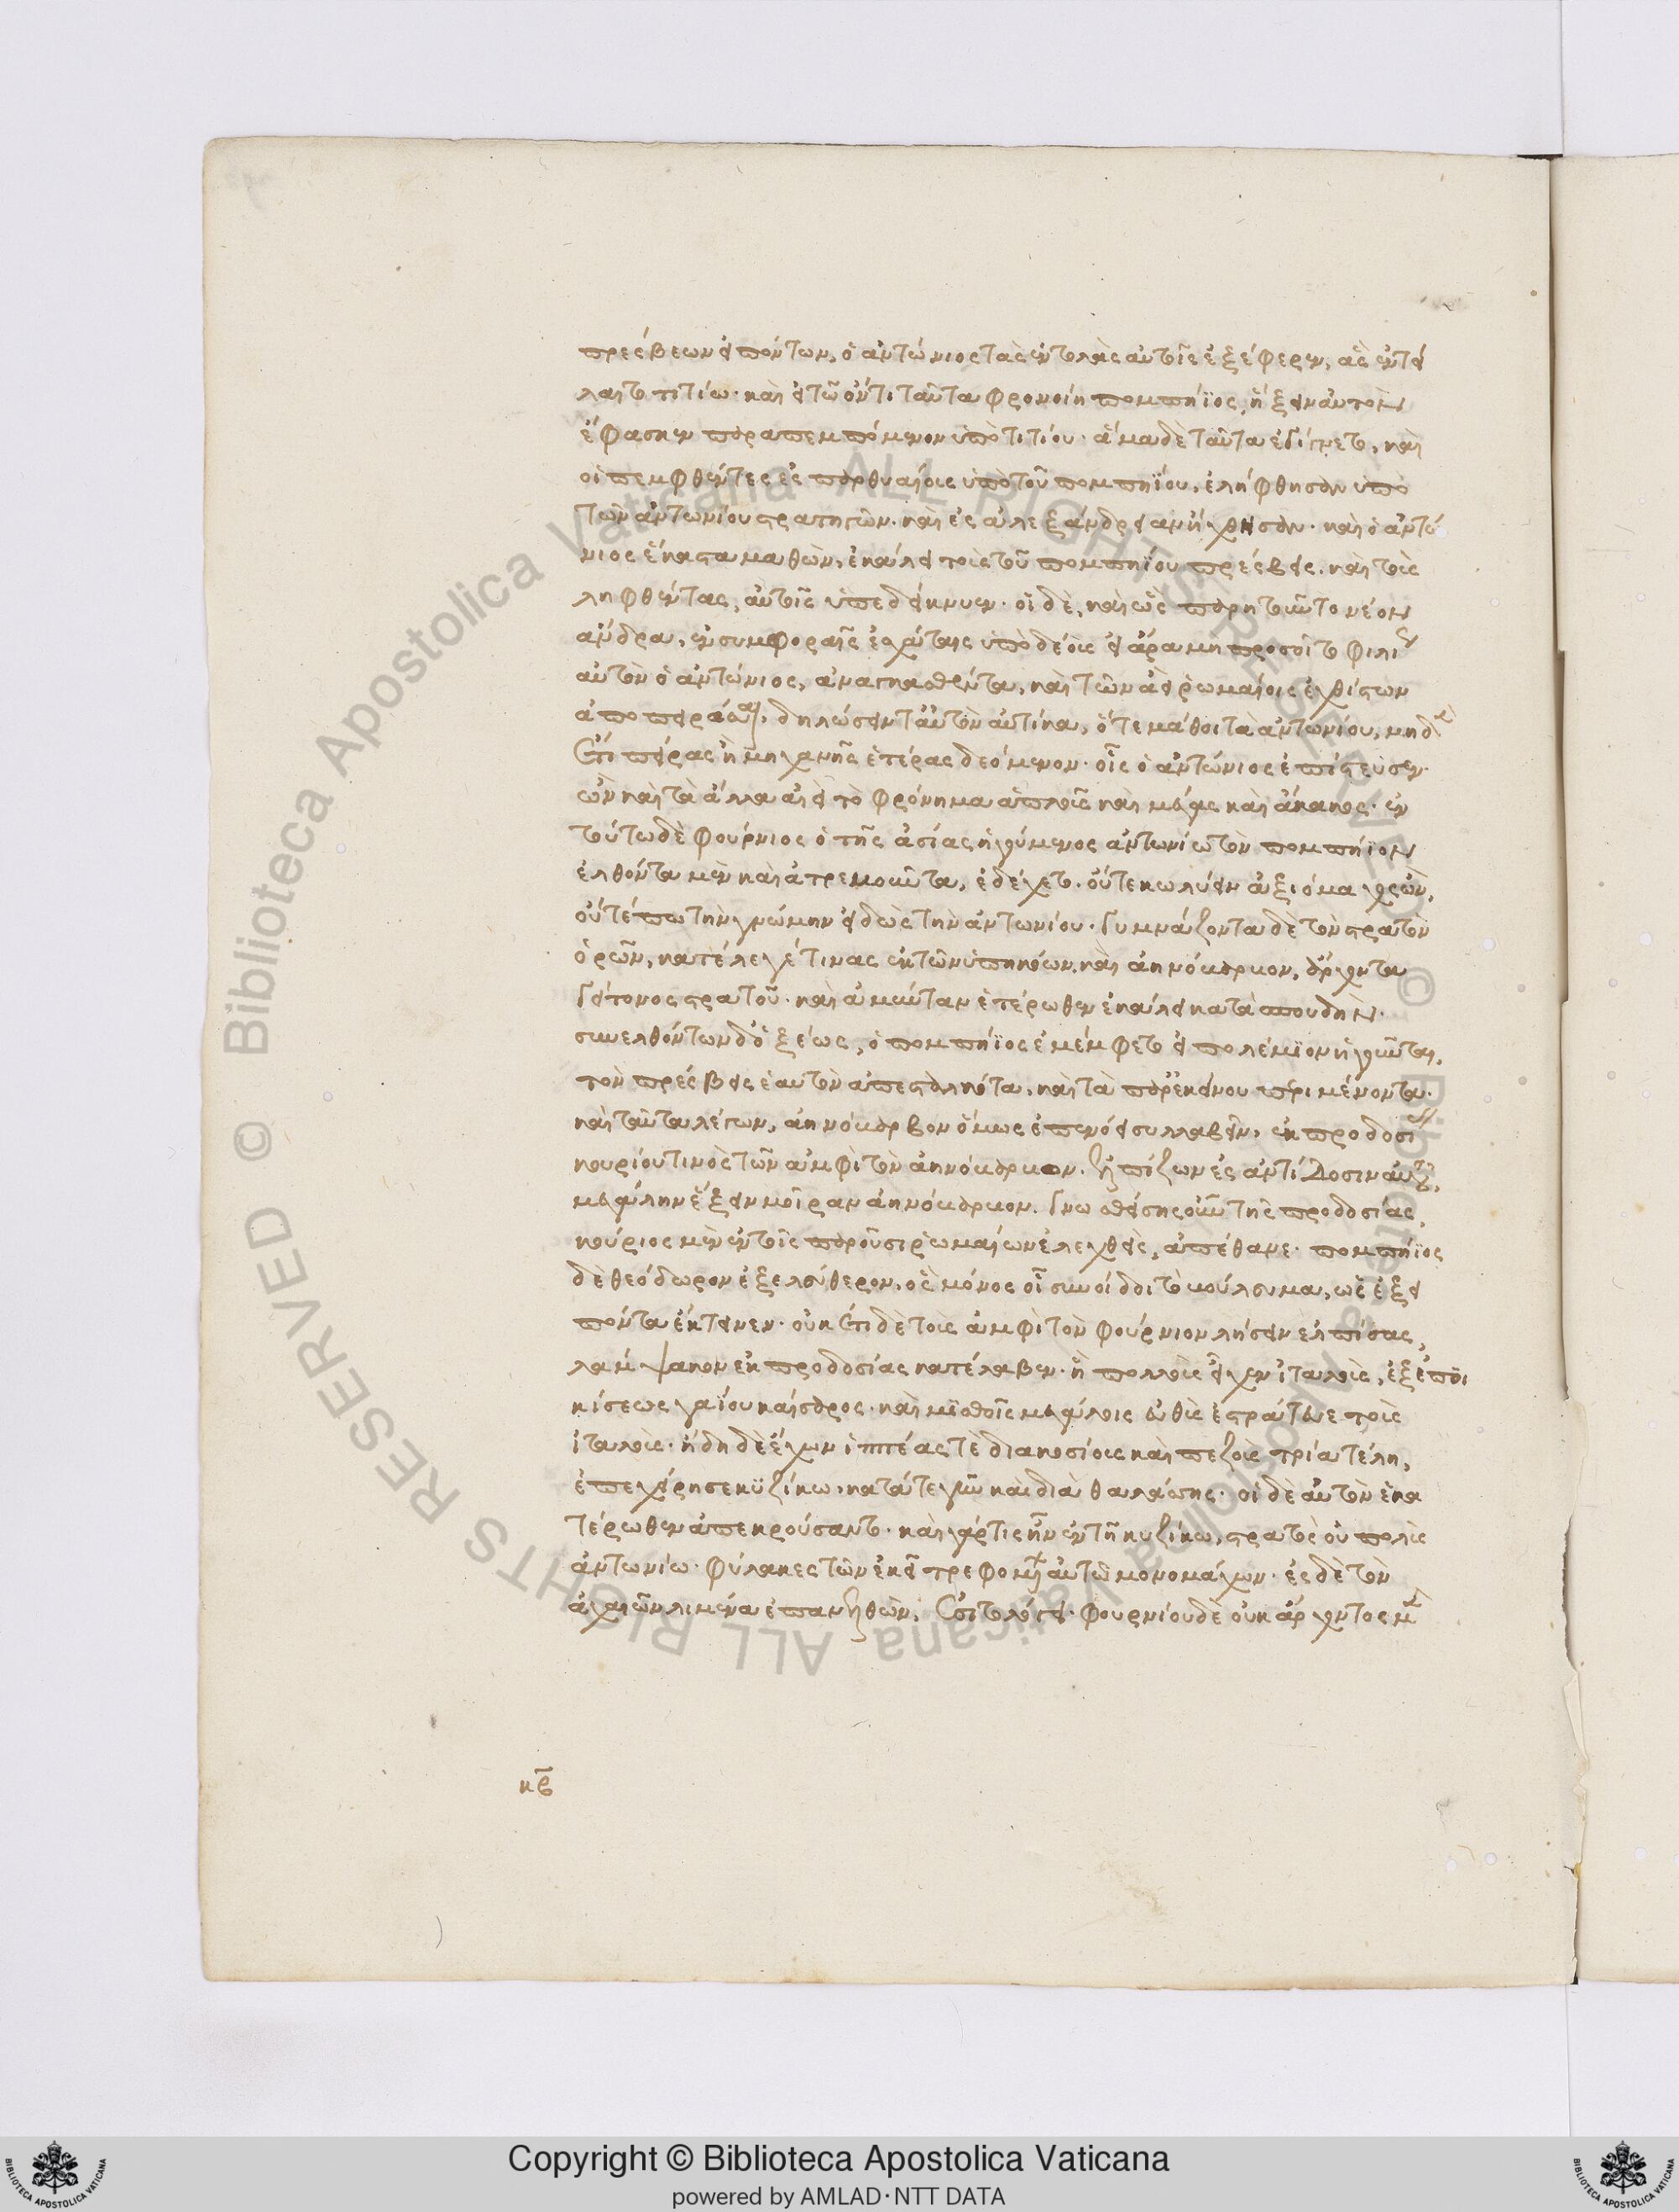 πρέσβεων εἰπόντων, ὁ ἀντώνιος τὰς ἐντολὰς αὐτοῖς ἐξέφερεν, ἃς ἐντεί
λαιτο τιτίω· καὶ εἰ τῶ ὄντι ταῦτα φρονοίη πομπήϊος, ἥξειν αὐτὸν
ἔφασκεν παραπεμπόμενον ὑπὸ τιτίου· ἅμα δὲ ταῦτα ἐγίγνετο, καὶ
οἱ πεμφθέντες ἐς παρθυαίους ὑπὸ τοῦ πομπηΐου, ἐλήφθησαν ὑπὸ
τῶν ἀντωνίου στρατηγῶν· καὶ ἐς ἀλεξάνδρειαν ἤχθησαν· καὶ ὁ ἀντώ
νιος ἕκαστα μαθὼν, ἐκάλει τοὺς τοῦ πομπηΐου πρέσβεις· καὶ τοὺς
ληφθέντας, αὐτοῖς ὑπεδείκνυεν· οἱ δὲ, καὶ ὣς παρῃτοῦντο νέον
ἄνδρα, ἐν συμφοραῖς ἐσχάταις ὑπὸ δέους εἰ ἄρα μὴ προσοῖτο φιλι
αὐτὸν ὁ ἀντώνιος, ἀναγκασθέντα, καὶ τῶν ἀεὶ ῥωμαίοις ἐχθίστων
ἀποπειρᾶσαι, δηλώσειν τ' αὐτὸν αὐτίκα, ὅτε μάθοι τὰ ἀντωνίου, μηδὲ
ἔτι πείρας ἢ μηχανῆς ἑτέρας δεόμενον· οἷς ὁ ἀντώνιος ἐπίστευσεν·
ὢν καὶ τὰ ἄλλα αἰεὶ τὸ φρόνημα ἁπλοῦς καὶ μέγας καὶ ἄκακος· ἐν
τούτω δὲ φούρνιος ὁ τῆς ἀσίας ἡγούμενος ἀντωνίω τὸν πομπήϊον
ἐλθόντα μὲν καὶ ἀτρεμοῦντα, ἐδέχετο· οὔτε κωλύειν ἀξιόμαχος ὢν,
οὔτέ πω τὴν γνώμην εἰδὼς τὴν ἀντωνίου· γυμνάζοντα δὲ τὸν στρατὸν
ὁρῶν, κατέλεγέ τινας ἐκ τῶν ὑπηκόων, καὶ ἀηνόβαρβον, ἄρχοντα
γείτονος στρατοῦ· καὶ ἀμύνταν ἑτέρωθεν ἐκάλει κατὰ σπουδὴν·
συνελθόντων δ' ὀξέως, ὁ πομπήϊος ἐμέμφετο εἰ πολέμϊον ἡγοῦνται,
τὸν πρέσβεις ἑαυτὸν ἀπεσταλκότα, καὶ τὰ παρ' ἐκείνου περιμένοντα·
καὶ ταῦτα λέγων, ἀηνόβαρβον ὅμως ἐπενόει συλλαβεῖν, ἐκ προδοσί
κουρίου τινὸς τῶν ἀμφὶ τὸν ἀηνόβαρβον· ἐλπίζων ἐς ἀντίδοσιν αὑτοῦ,
μεγάλην ἕξειν μοῖραν ἀηνόβαρβον· γνωσθείσης οὖν τῆς προδοσίας,
κούριος μὲν ἐν τοῖς παροῦσι ῥωμαίων ἐλεγχθεὶς, ἀπέθανε· πομπήϊος
δὲ θεόδωρον ἐξελεύθερον, ὃς μόνος οἷ συνοίδοι τὸ βούλευμα, ὡς ἐξει
πόντα ἔκτεινεν· οὐκ ἔτι δὲ τοὺς ἀμφὶ τὸν φούρνιον λήσειν ἐλπίσας,
λαμψακον ἐκ προδοσίας κατέλαβεν· ἣ πολλοὺς εἶχεν ἰταλοὺς, ἐξ ἐποι
κίσεως γαΐου καίσαρος· καὶ μϊσθοῖς μεγάλοις εὐθὺς ἐστράτευε τοὺς
ἰταλοὺς· ἤδη δὲ ἔχων ἱππέας τὲ διακοσίους καὶ πεζοὺς τρία τέλη,
ἐπεχείρησε κυζίκω, κατά τε γῆν καὶ διὰ θαλάσσης· οἱ δὲ αὐτὸν ἑκα
τέρωθεν ἀπεκρούσαντο· καὶ γάρ τις ἦν ἐν τῆ κυζίκω, στρατὸς οὐ πολὺς
ἀντωνίω· φύλακες τῶν ἐκεῖ τρεφομένων αὐτῶ μονομάχων· ἐς δὲ τὸν
ἀχαιῶν λιμένα ἐπανελθὼν, ἐσιτολόγει· φουρνίου δὲ οὐκ ἄρχοντος μὲν
κβ